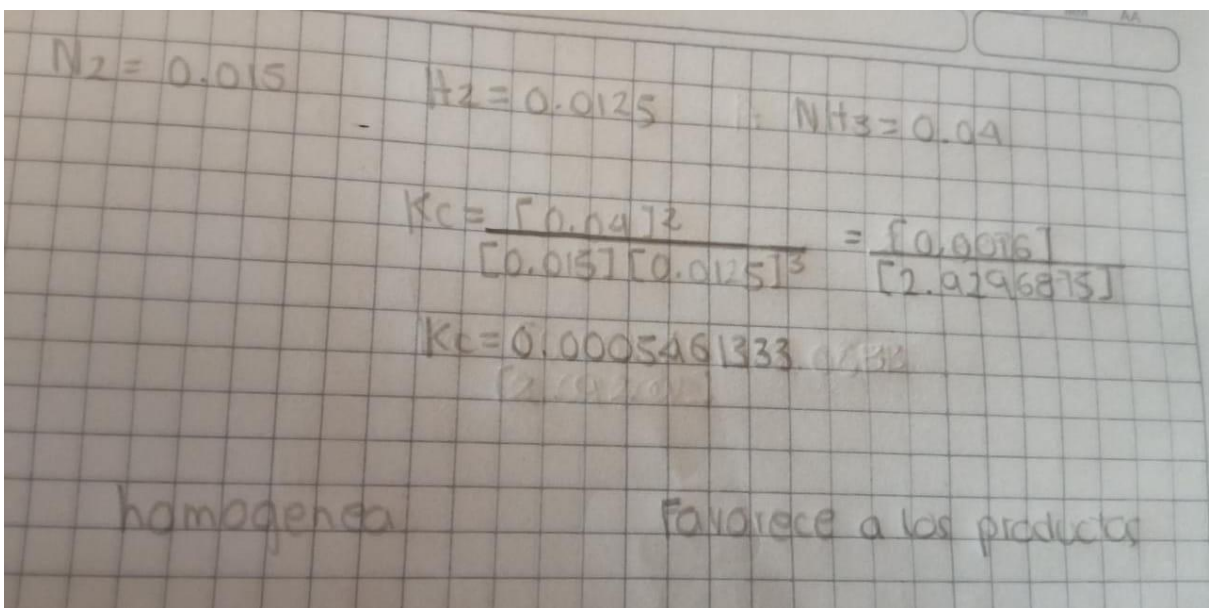 N2 = 0.015 H2 = 0.0125 NH3 = 0.04
Kc = [0.04]2 = [0.0016]
[0.015][0.0125]3 [2.9296875]
Kc = 0.0005461333
homogenea Favorece a los productos